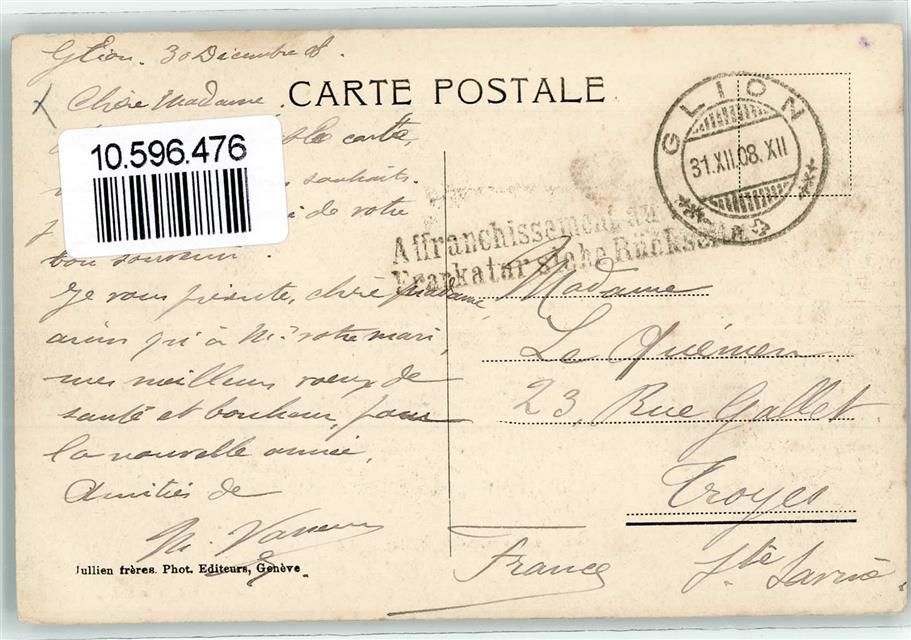 Glion. 30 Décembre 08.
Chère Madame,
CARTE POSTALE
carte,
10.596.476
souhaits.
de votre
bon souvenir.
Je vous présente, chère Madame,
ainsi qu'à Mr votre mari,
mes meilleurs voeux de
santé et bonheur, pour
la nouvelle année.
Amitiés de
M.
Jullien frères. Phot. Editeurs, Genève
GLION
31.XII.08.XII
Affranchissement au
Frankatur siehe Rückseite
Madame
Le Quémen
23, Rue Gallet
Troyes
Ste Savine
France